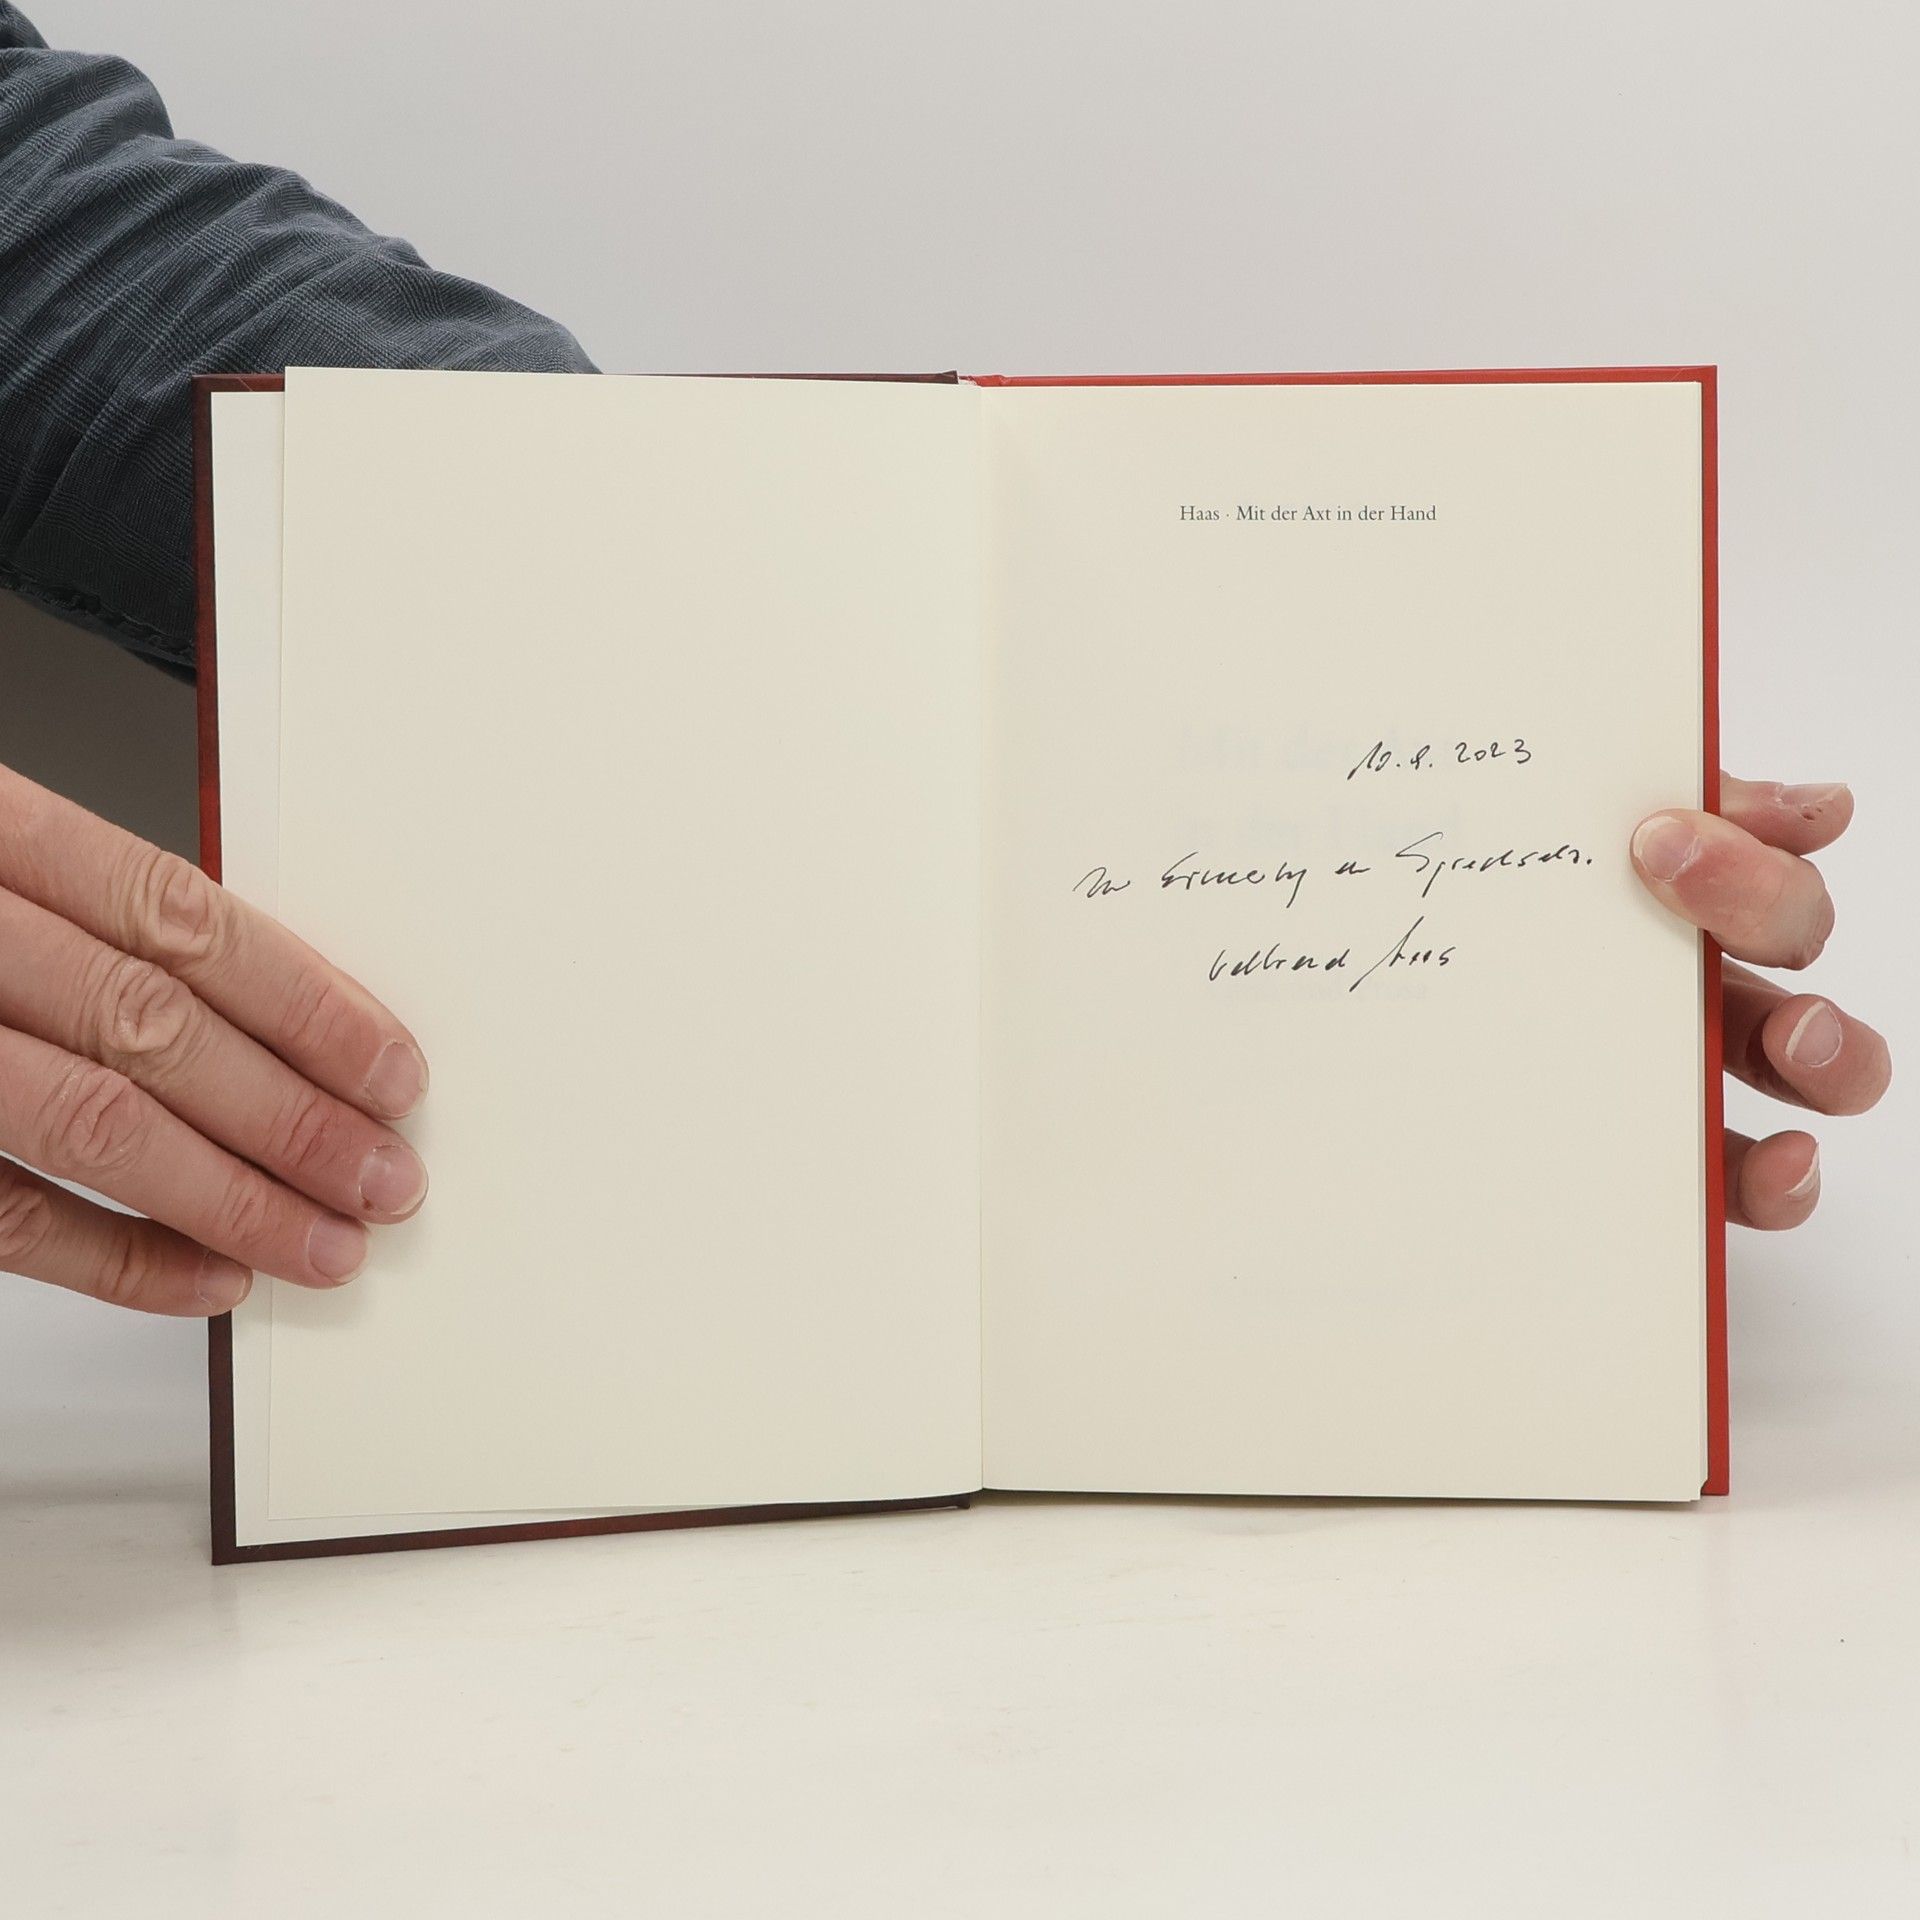 Haas · Mit der Axt in der Hand
10.9. 2023
Zur Erinnerung an
Haas